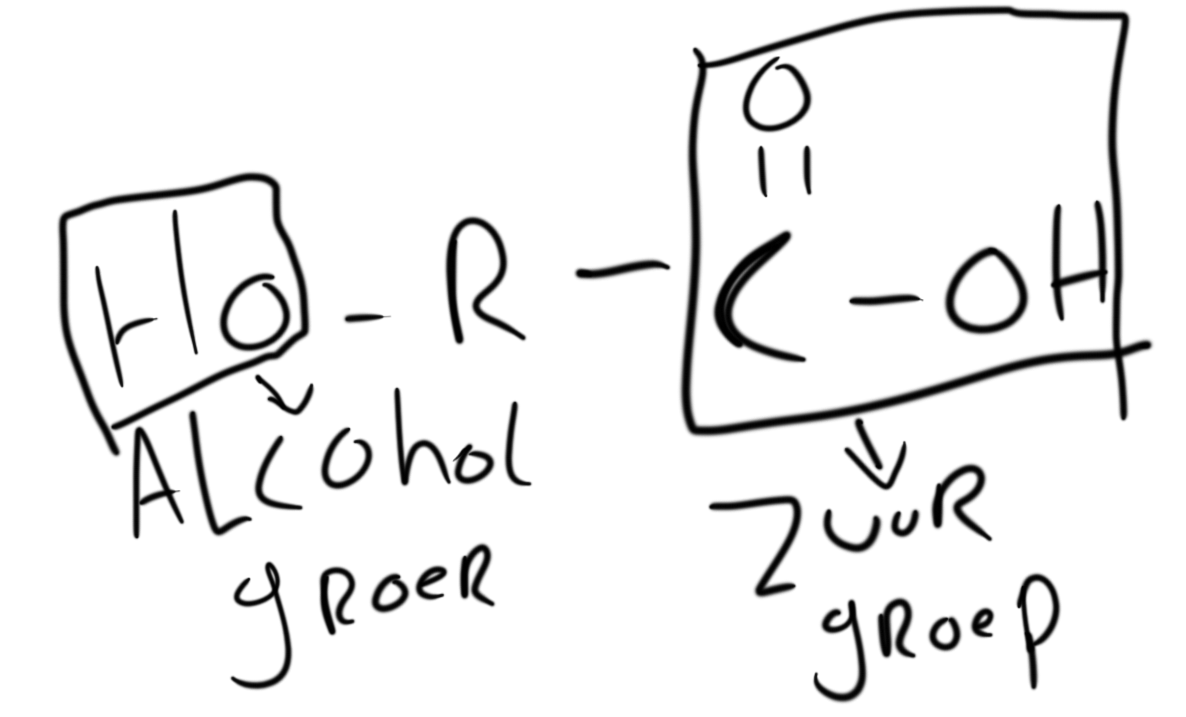 O
||
HO - R - C - OH
ALcohol
gRoeR
ZuuR
gRoep